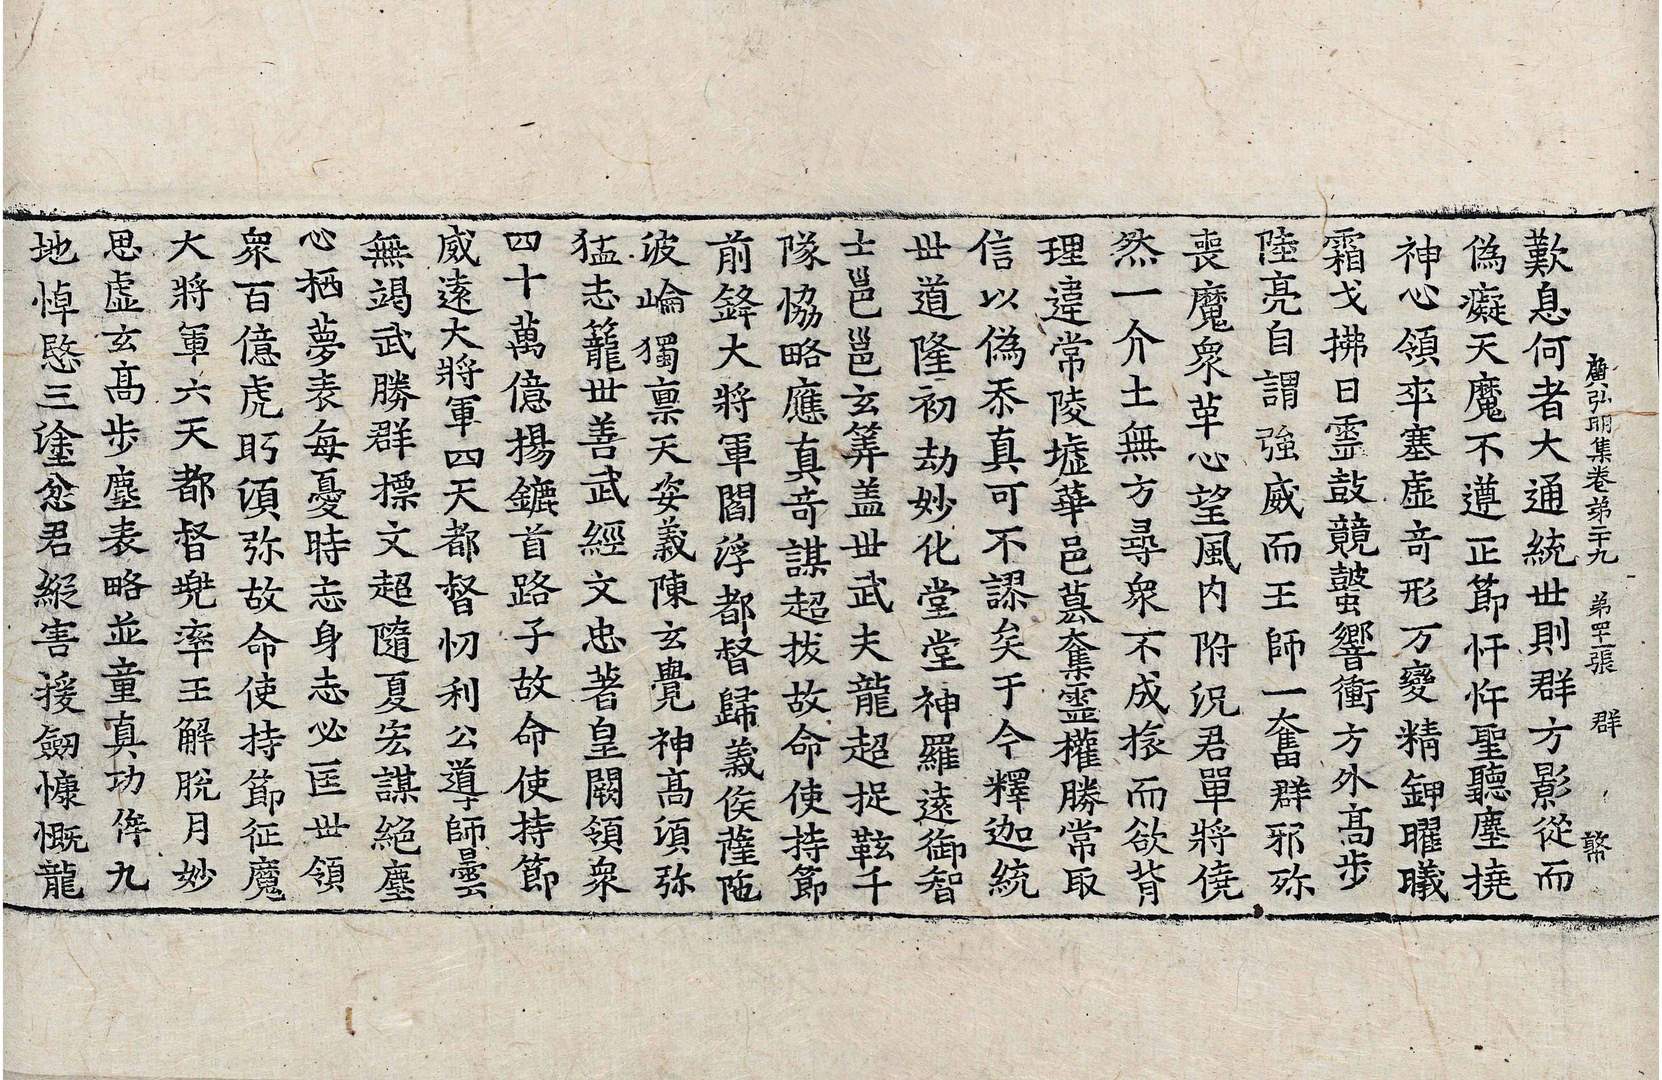 廣弘明集卷第二十九 第四二張 群
歎息何者大通統世則群方影從而
偽癡天魔不遵正節忏忤聖聽塵撓
神心領卒塞虛奇形万變精鉀曜曦
霜戈拂日靈鼓競䶀響衝方外高步
陸亮自謂強威而王師一奮群邪殄
喪魔衆革心望風內附況君單將僥
然一介土無方尋衆不成旅而欲背
理違常陵墟華邑篡奪靈權勝常取
信以偽忝真可不謬矣于今釋迦統
世道隆初劫妙化堂堂神羅遠御智
士邕邕玄筭盖世武夫龍超捉鞍千
隊恊略應真奇謀超拔故命使持節
前鋒大將軍閻浮都督歸義侯薩陁
波崘獨稟天姿義陳玄覺神高須弥
猛志籠世善武經文忠著皇闕領衆
四十萬億揚鑣首路子故命使持節
威遠大將軍四天都督忉利公導師曇
無竭武勝群摽文超隨夏宏謀絕塵
心栖夢表每憂時志身志必匡世領
衆百億虎眄須弥故命使持節征魔
大將軍六天都督兠率王解脫月妙
思虛玄高步塵表略並童真功侔九
地悼愍三塗忿君縱害援劒慷慨龍